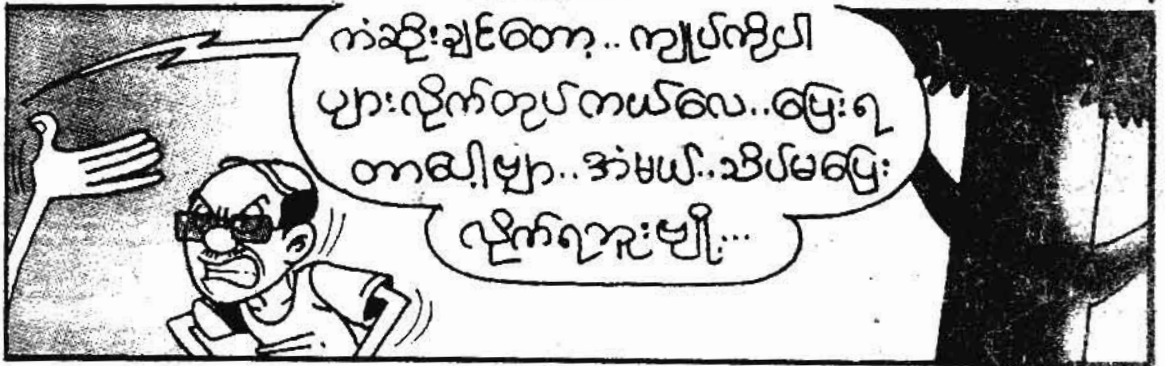 ကံဆိုးချင်တော့..ကျုပ်ကိုပါ
ပျားလိုက်တုပ်ကယ်လေ..ပြေးရ
တာပေါ့ဗျာ..အံမယ်..သိပ်မပြေး
လိုက်ရဘူးဗျို့...